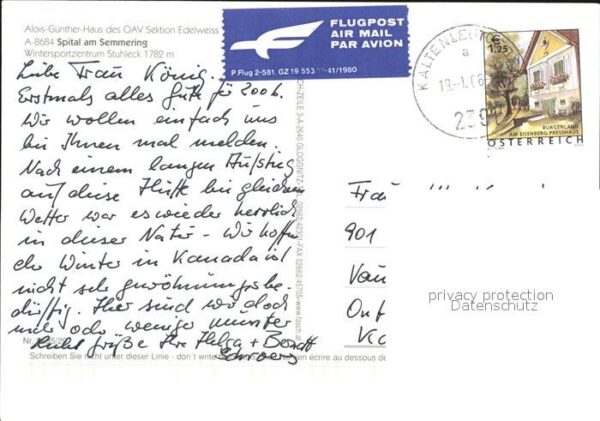 Alois-Günther-Haus des ÖAV Sektion Edelweiss
A-8684 Spital am Semmering
Wintersportzentrum Stuhleck 1782 m
FLUGPOST
AIR MAIL
PAR AVION
P.Flug 2-581. GZ 19 553 41/1980
KALTENLEUT
a
19.-1.06
230
€ 1,25
BURGENLAND
AM EISENBERG PRESSHAUS
ÖSTERREICH
Liebe Frau König.
Erstmals alles Gute für 2006.
Wir wollen einfach uns
bei Ihnen mal melden.
Nach einem langen Aufstieg
auf diese Hütte bei gleichem
Wetter war es wieder herrlich
in dieser Natur - Wir hoffen
der Winter in Kanada ist
nicht sehr gewöhnungsbe-
dürftig. Hier sind wir doch
mehr oder weniger munter
Liebe Grüße Ihre Helga +
Frau
901
Vau
Ont
Ka
privacy protection
Datenschutz
Schreiben Sie nicht unter dieser Linie - don´t write écrire au dessous de